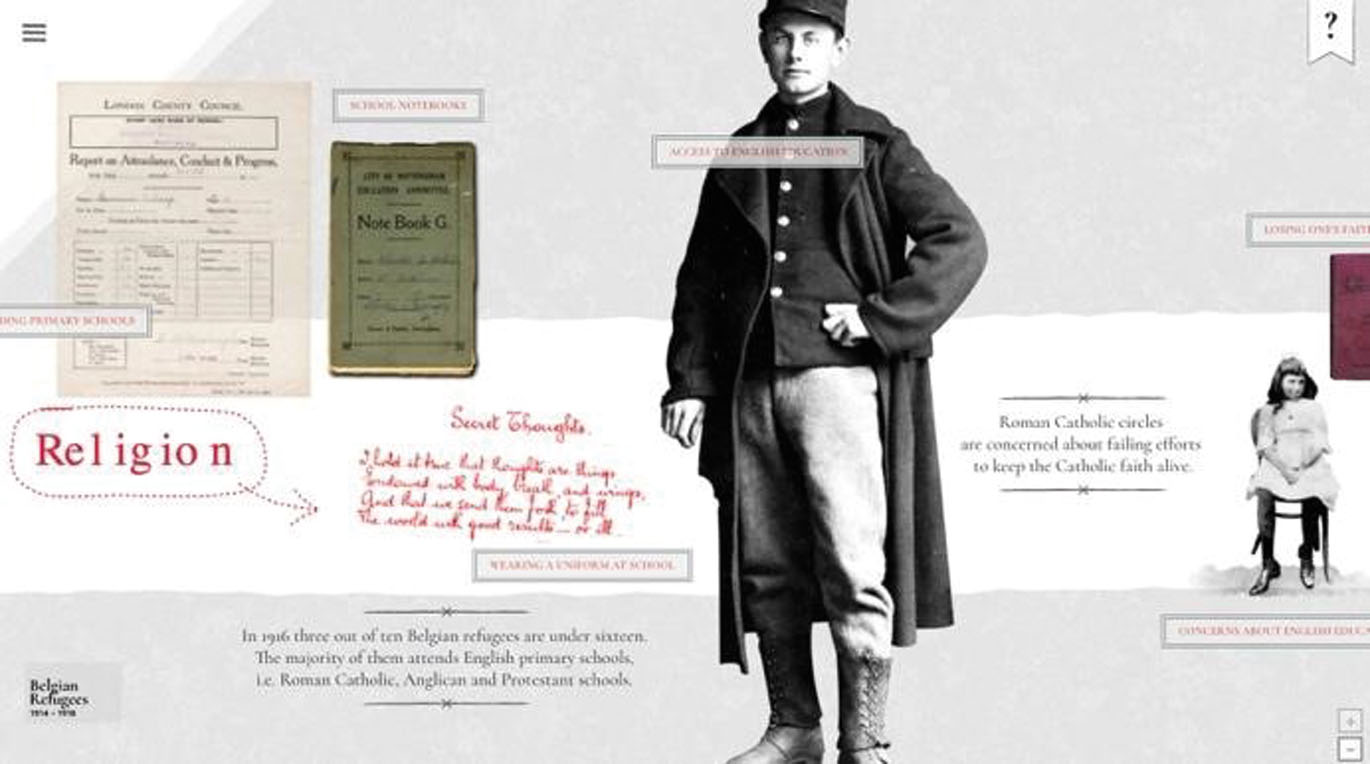 ?
London County Council.
Report on Attendance, Conduct & Progress,
SCHOOL NOTEBOOKS
CITY OF NOTTINGHAM
EDUCATION COMMITTEE.
Note Book G.
ACCESS TO ENGLISH EDUCATION
LOSING ONE'S FAIT
DING PRIMARY SCHOOLS
Religion
Secret Thoughts.
I hold it true that thoughts are things
Endowed with body, breath, and wings,
And that we send them forth to fill
The world with good results — or ill.
Roman Catholic circles
are concerned about failing efforts
to keep the Catholic faith alive.
WEARING A UNIFORM AT SCHOOL
In 1916 three out of ten Belgian refugees are under sixteen.
The majority of them attends English primary schools,
i.e. Roman Catholic, Anglican and Protestant schools.
CONCERNS ABOUT ENGLISH EDUCA
Belgian
Refugees
1914 - 1918
+
-